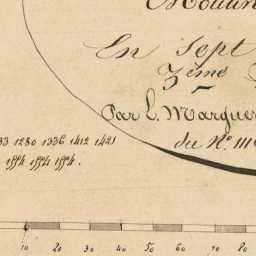 En Sept
3ème
Par L. Marguer
du No. 111
33 1280 1336 1412 1421
1554 1551 1554.
10 20 30 40 50 60 70 80